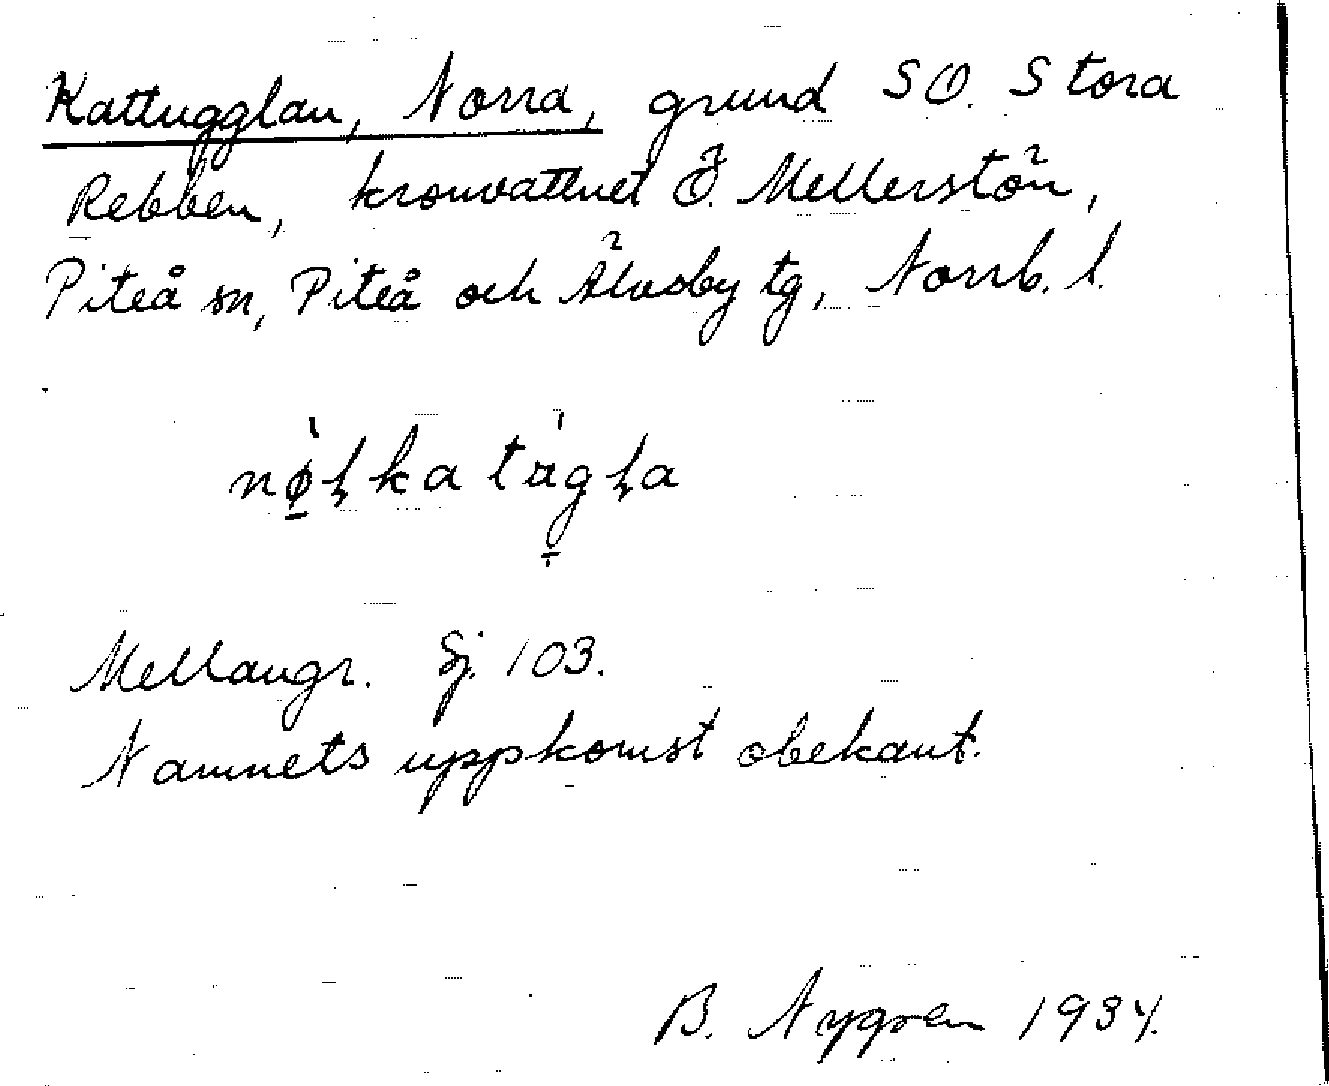 Kattugglan, Norra, grund SO. Stora
Rebben, kronvattnet Ö. Mellerstön,
Piteå sn, Piteå och Älvsby tg, Norrb. l.
nø̀ļka tágļa
Mellangr. Sj. 103.
Namnets uppkomst obekant.
B. Nygren 1934.